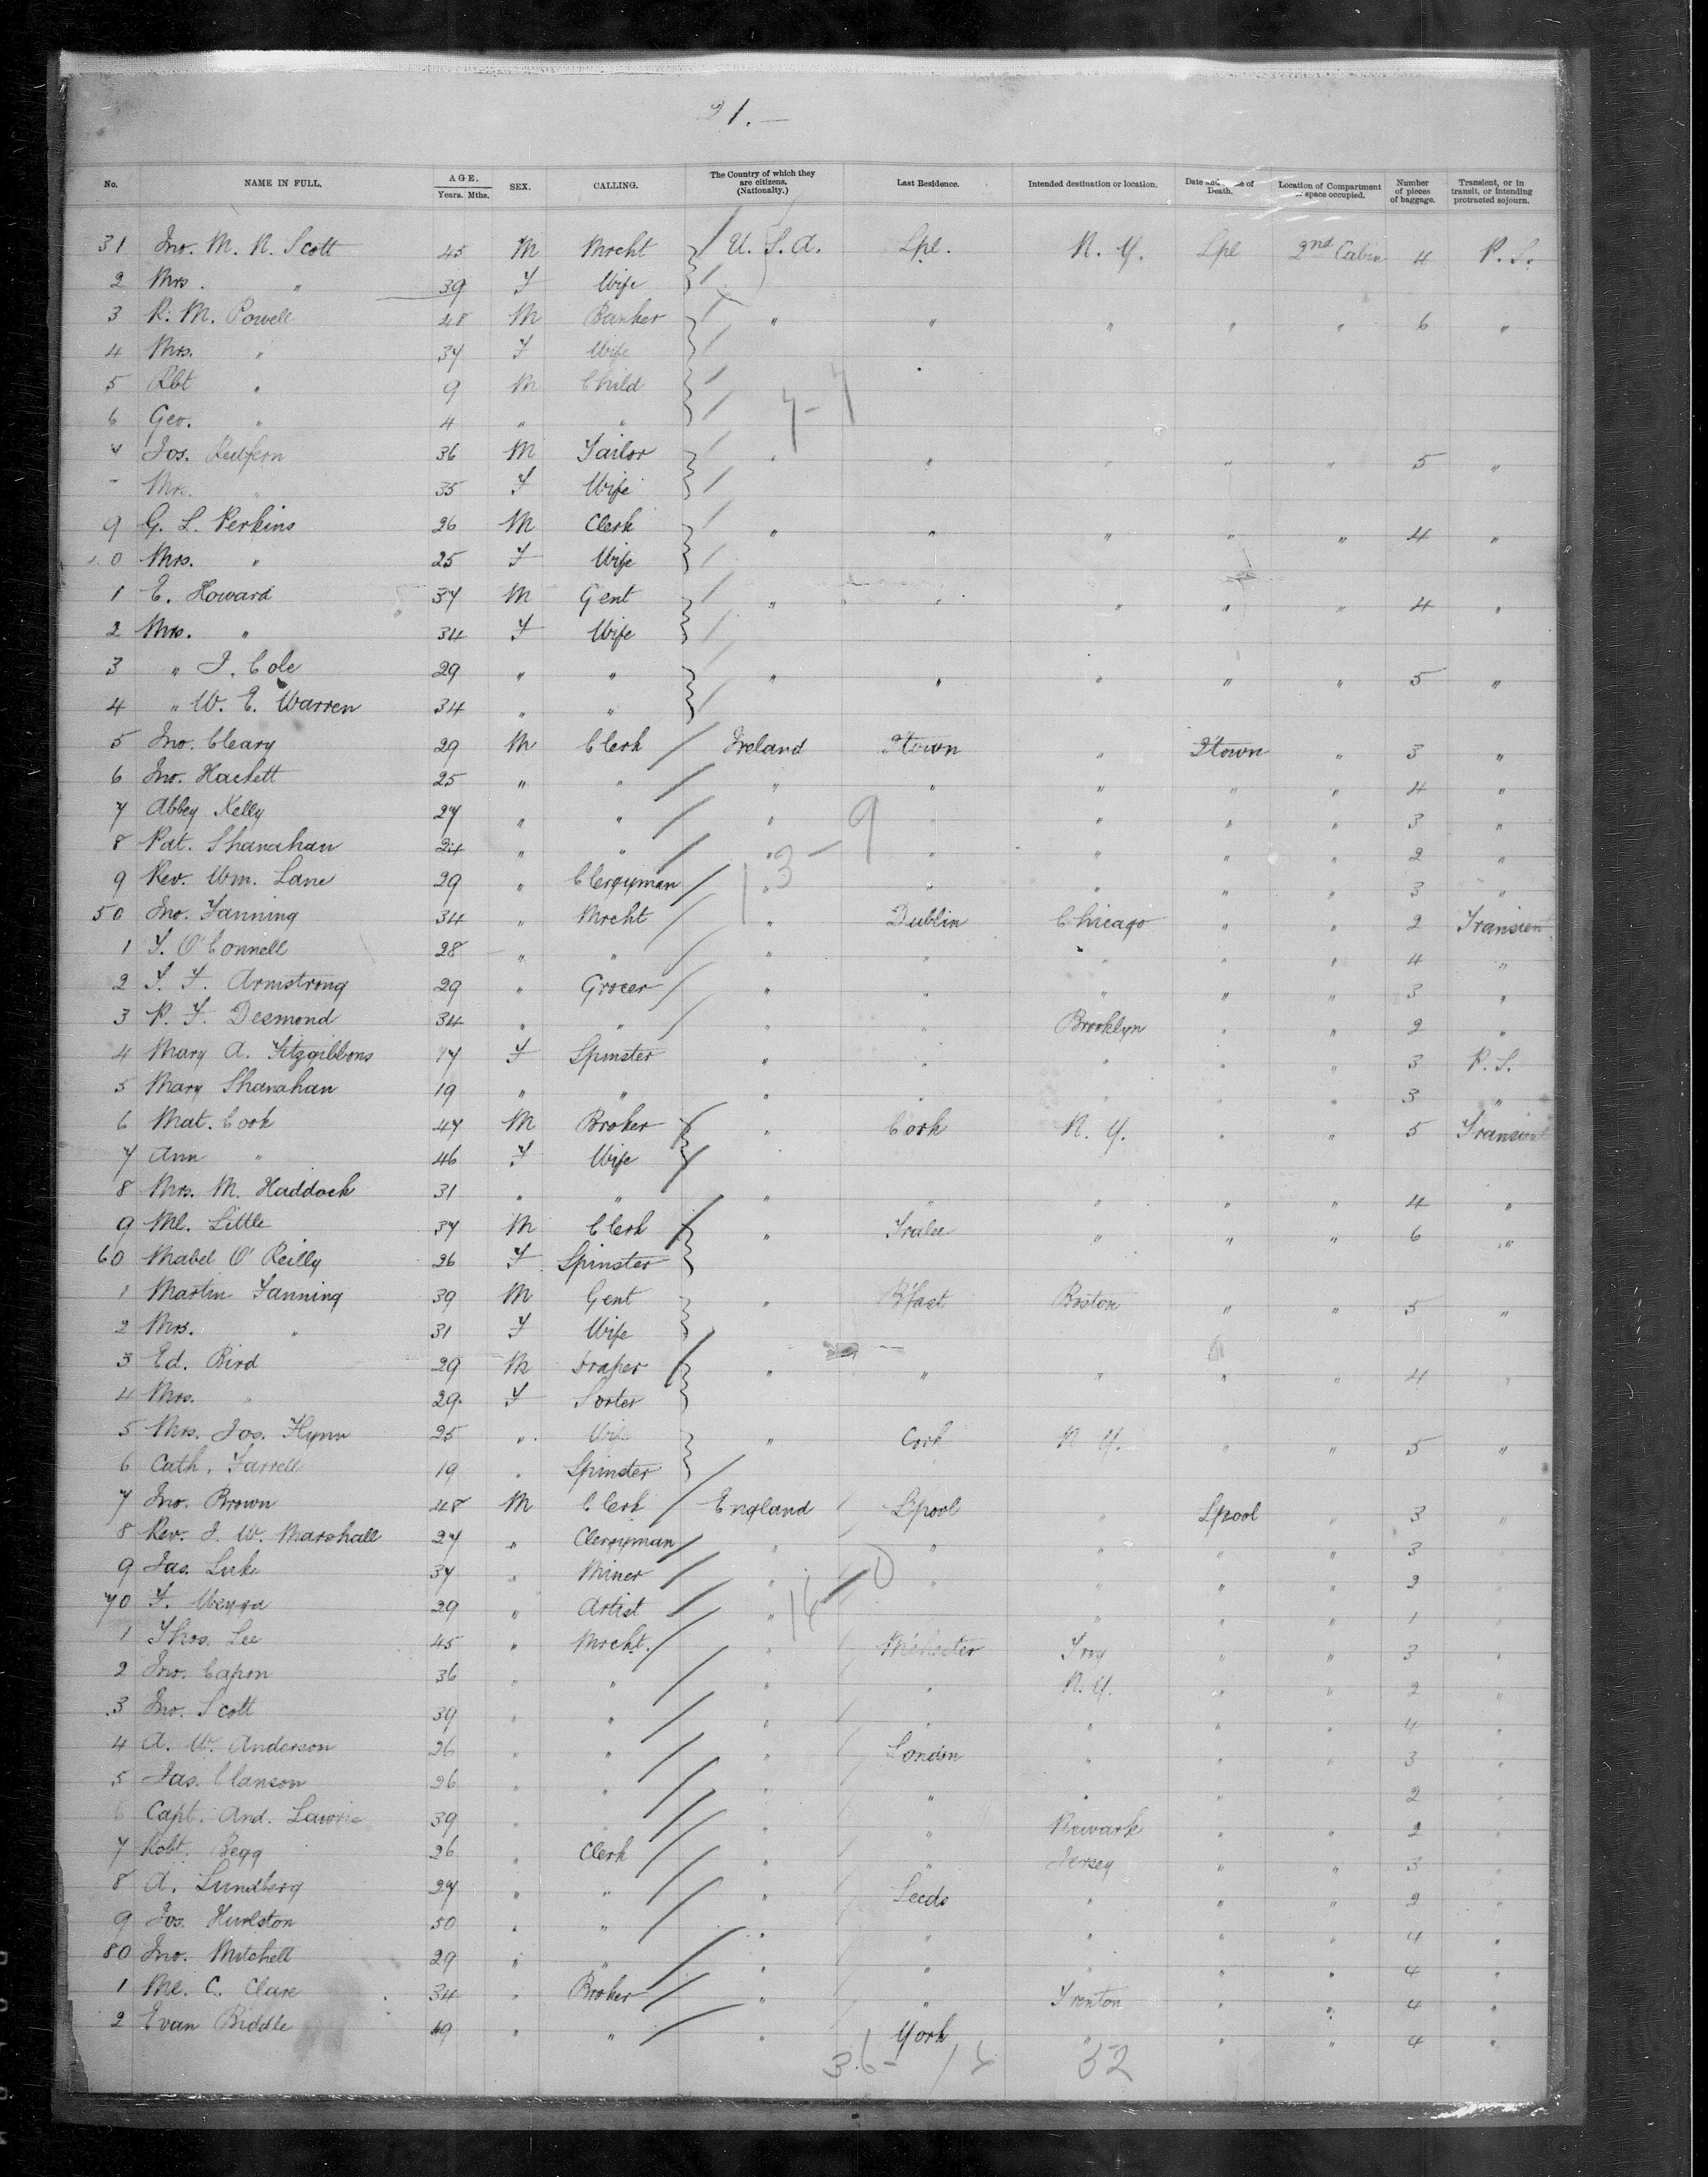 21.—
No. NAME IN FULL. AGE. Years. Mths. SEX. CALLING. The Country of which they are citizens. (Nationalty.) Last Residence. Intended destination or location. Date and of Death. Location of Compartment space occupied. Number of pieces of baggage. Transient, or in transit, or intending protracted sojourn.
31 Jno. M. N. Scott 45 M Mrcht U. S. A. Lpl. N. Y. Lpl 2nd Cabin 4 P. S.
2 Mrs. " 39 F Wife
3 R. M. Powell 48 M Banker " " " " " 6 "
4 Mrs. " 37 F Wife
5 Rbt " 9 M Child
6 Geo. " 4 " "
7-7
7 Jos. Redfern 36 M Tailor " " " " " 5 "
Mrs. " 35 F Wife
9 G. L. Perkins 26 M Clerk " " " " " 4 "
0 Mrs. " 25 F Wife
1 E. Howard 37 M Gent " " " " " 4 "
2 Mrs. " 34 F Wife
3 " J. Cole 29 " " " " " " " 5 "
4 " W. E. Warren 34 " "
5 Jno. Cleary 29 M Clerk Ireland Qtown " Qtown " 3 "
6 Jno. Hackett 25 " " " " " " " 4 "
7 Abbey Kelly 27 " " " " " " " 3 "
8 Pat. Shanahan 24 " " " " " " " 2 "
13-9
9 Rev. Wm. Lane 29 " Clergyman " " " " " 3 "
50 Jno. Fanning 34 " Mrcht " Dublin Chicago " " 2 Transient
1 T. O'Connell 28 " " " " " " " 4 "
2 T. F. Armstrong 29 " Grocer " " " " " 3 "
3 P. F. Desmond 34 " " " " Brooklyn " " 2 "
4 Mary A. Fitzgibbons 17 F Spinster " " " " " 3 P. S.
5 Mary Shanahan 19 " " " " " " " 3 "
6 Mat. Cook 47 M Broker " Cork N. Y. " " 5 Transient
7 Ann " 46 F Wife
8 Mrs. M. Haddock 31 " " " " " " " 4 "
9 Ml. Little 37 M Clerk " Tralee " " " 6 "
60 Mabel O'Reilly 26 F Spinster
1 Martin Fanning 39 M Gent " B'fast Boston " " 5 "
2 Mrs. " 31 F Wife
3 Ed. Bird 29 M Draper " " " " " 4 "
4 Mrs. " 29 F Sorter
5 Mrs. Jos. Flynn 25 " Wife " Cork N. Y. " " 5 "
6 Cath. Farrell 19 " Spinster
7 Jno. Brown 48 M Clerk England L'pool " Lpool " 3 "
8 Rev. J. W. Marshall 27 " Clergyman " " " " " 3 "
9 Jas. Luke 37 " Miner " " " " " 2 "
16-0
70 F. 29 " Artist " " " " " 1 "
1 Thos. Lee 45 " Mrcht. " M'chester Troy " " 3 "
2 Jno. Capon 36 " " " " N. Y. " " 2 "
3 Jno. Scott 39 " " " " " " " 4 "
4 A. W. Anderson 26 " " " London " " " 3 "
5 Jas. Clanson 26 " " " " " " 2 "
6 Capt. And. Lawrie 39 " " " " Newark " " 2 "
7 Robt. Begg 26 " Clerk " " Jersey " " 3 "
8 A. Lundberg 27 " " " Leeds " " " 2 "
9 Jos. Hurlston 50 " " " " " " " 4 "
80 Jno. Mitchell 29 " " " " " " " 4 "
1 Ml. C. Clare 34 " Broker " " Trenton " " 4 "
2 Evan Biddle 49 " " " York " " " 4 "
36- 52